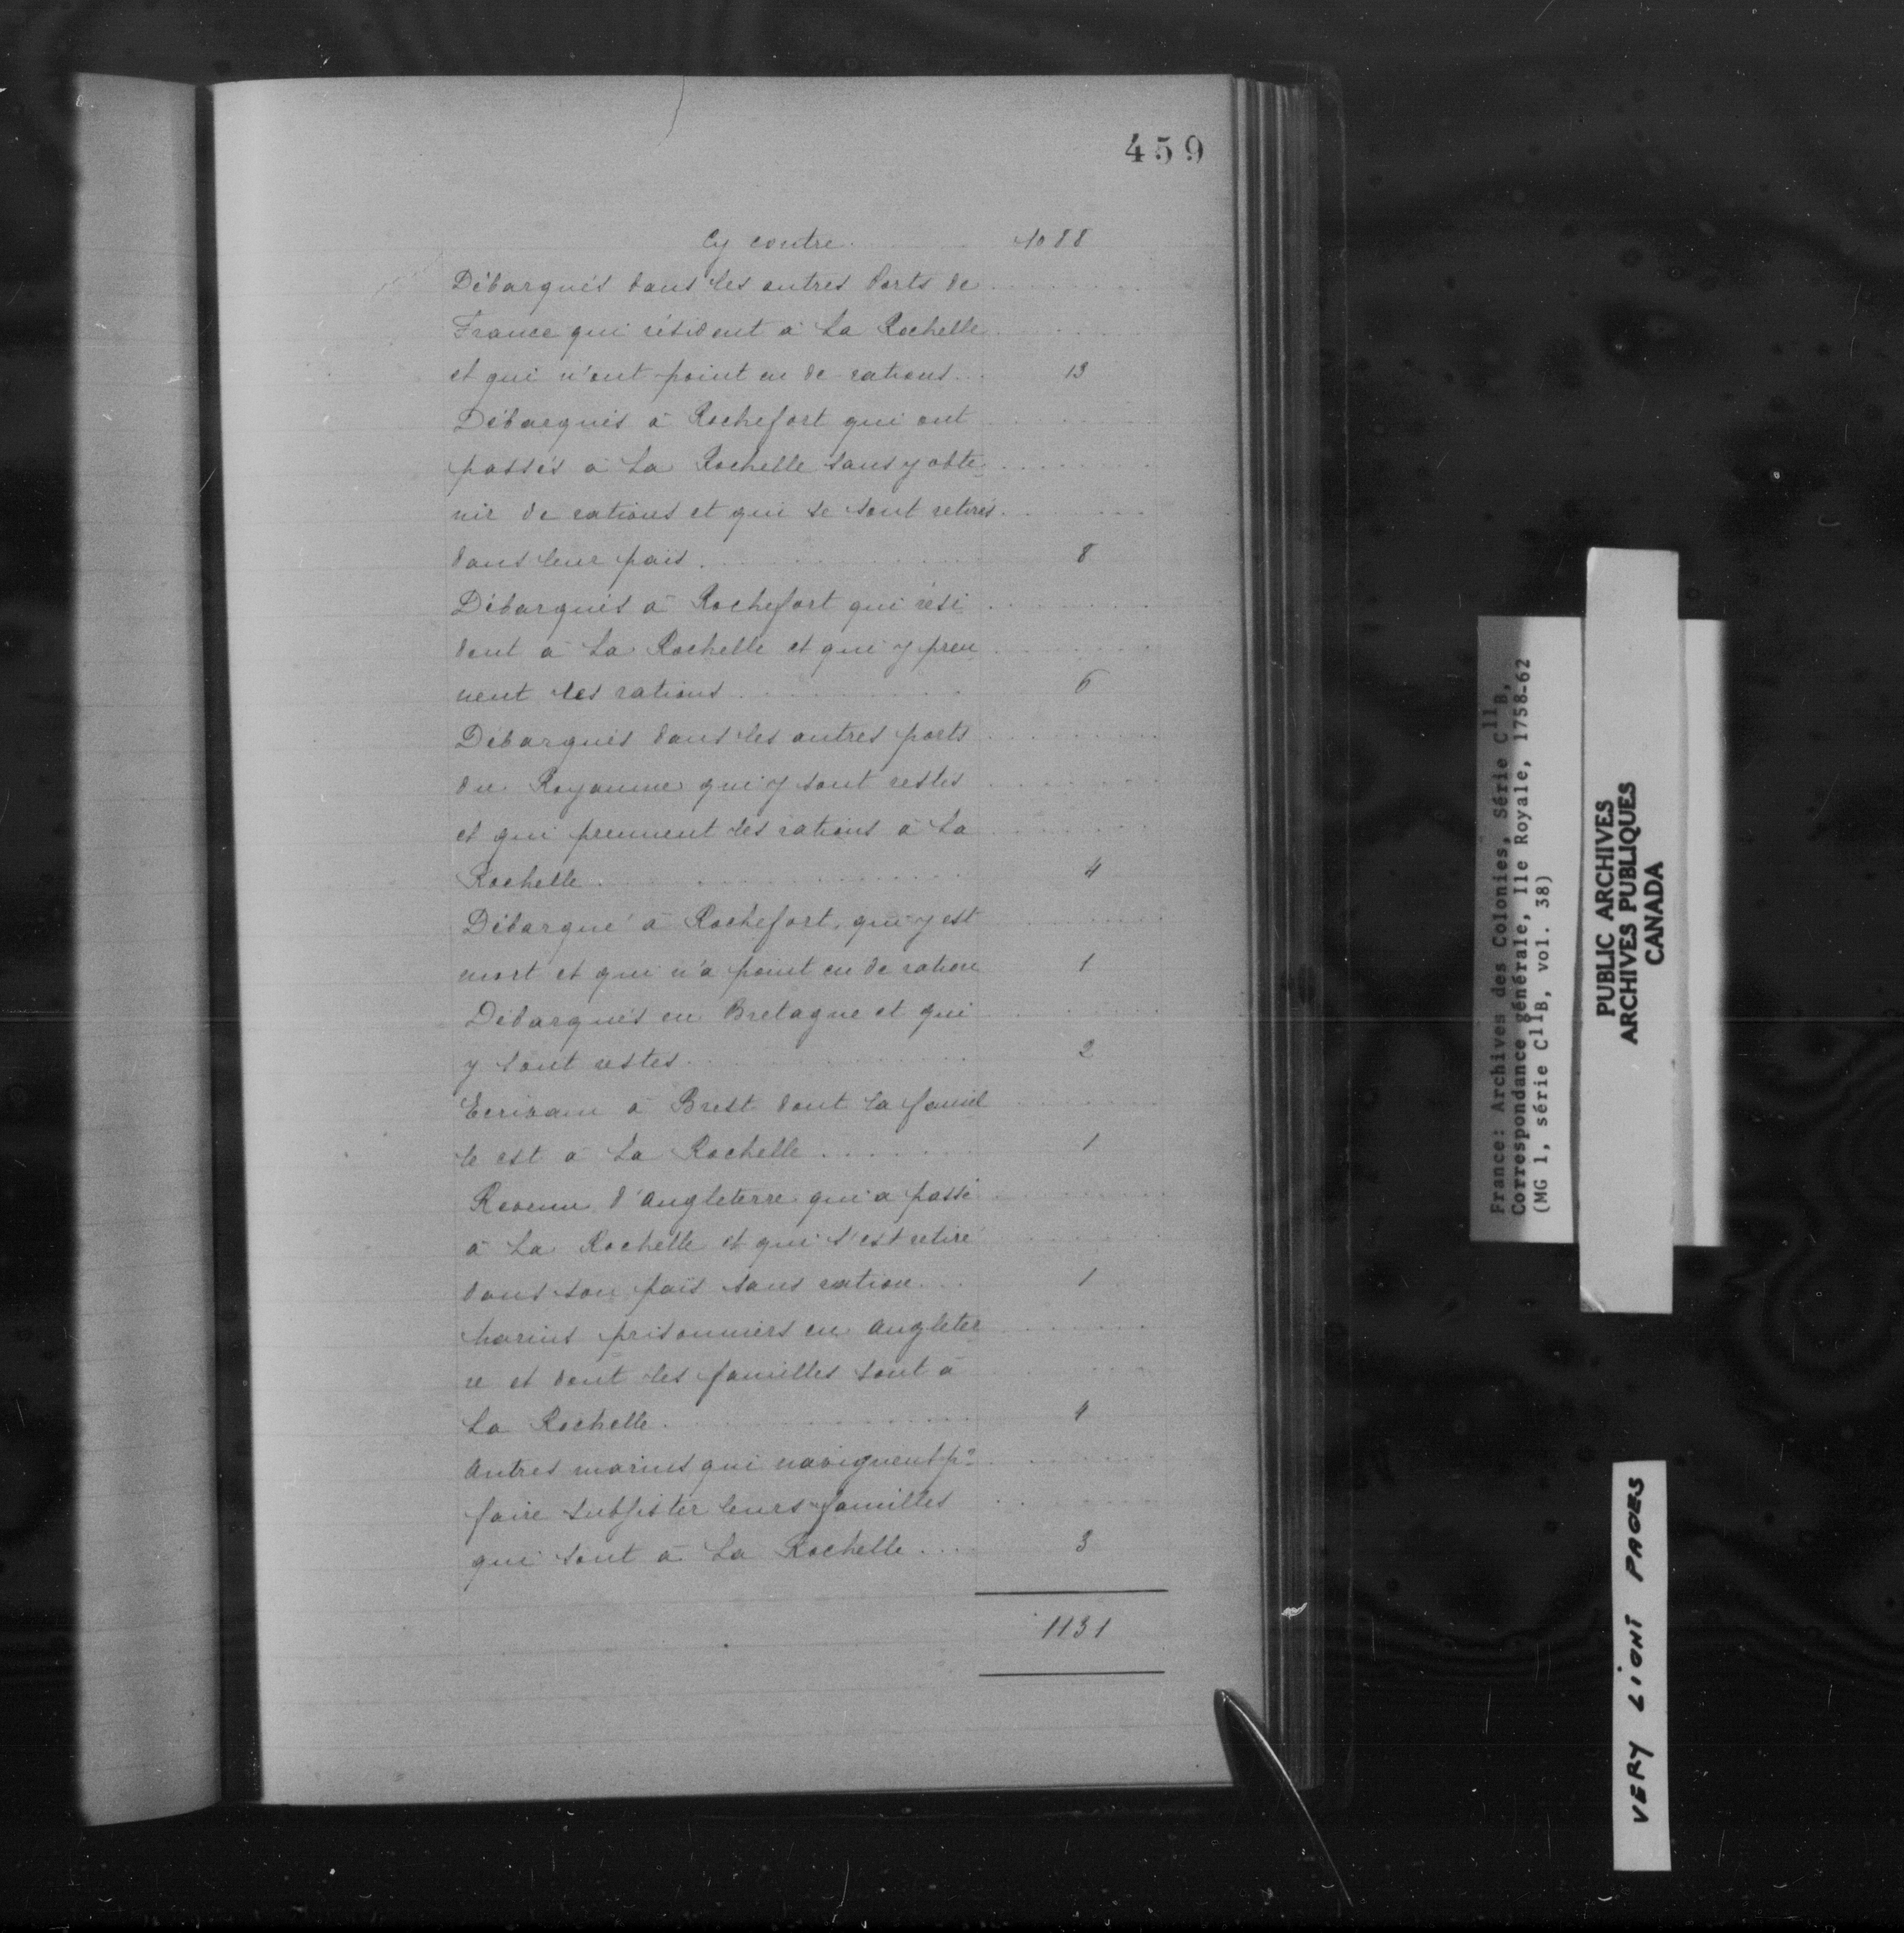 459
Cy contre 1088
Débarqués dans les autres Ports de
France qui résident à La Rochelle
et qui n'ont point eu de rations 13
Débarqués à Rochefort qui ont
passés à La Rochelle sans y obte-
nir de rations et qui se sont retirés
dans leur païs. 8
Débarqués à Rochefort qui rési
dent à La Rochelle et qui y pren
nent les rations 6
Débarqués dans les autres ports
du Royaume qui y sont restés
et qui prennent les rations à La
Rochelle 4
Débarqué à Rochefort, qui y est
mort et qui n'a point eu de ration 1
Débarqués en Bretagne et qui
y sont restés 2
Ecrivain à Brest dont la famil
le est à La Rochelle 1
Revenu d'Angleterre qui a passé
à La Rochelle et qui s'est retiré
dans son païs sans ration 1
Marins prisonniers en Angleter
re et dont les familles sont à
La Rochelle 4
Autres marins qui naviguent pr
faire subsister leurs familles
qui sont à La Rochelle 3
1131
France: Archives des Colonies, Série C11B,
Correspondance générale, Ile Royale, 1758-62
(MG 1, série C11B, vol. 38)
PUBLIC ARCHIVES
ARCHIVES PUBLIQUES
CANADA
VERY LIGHT PAGES